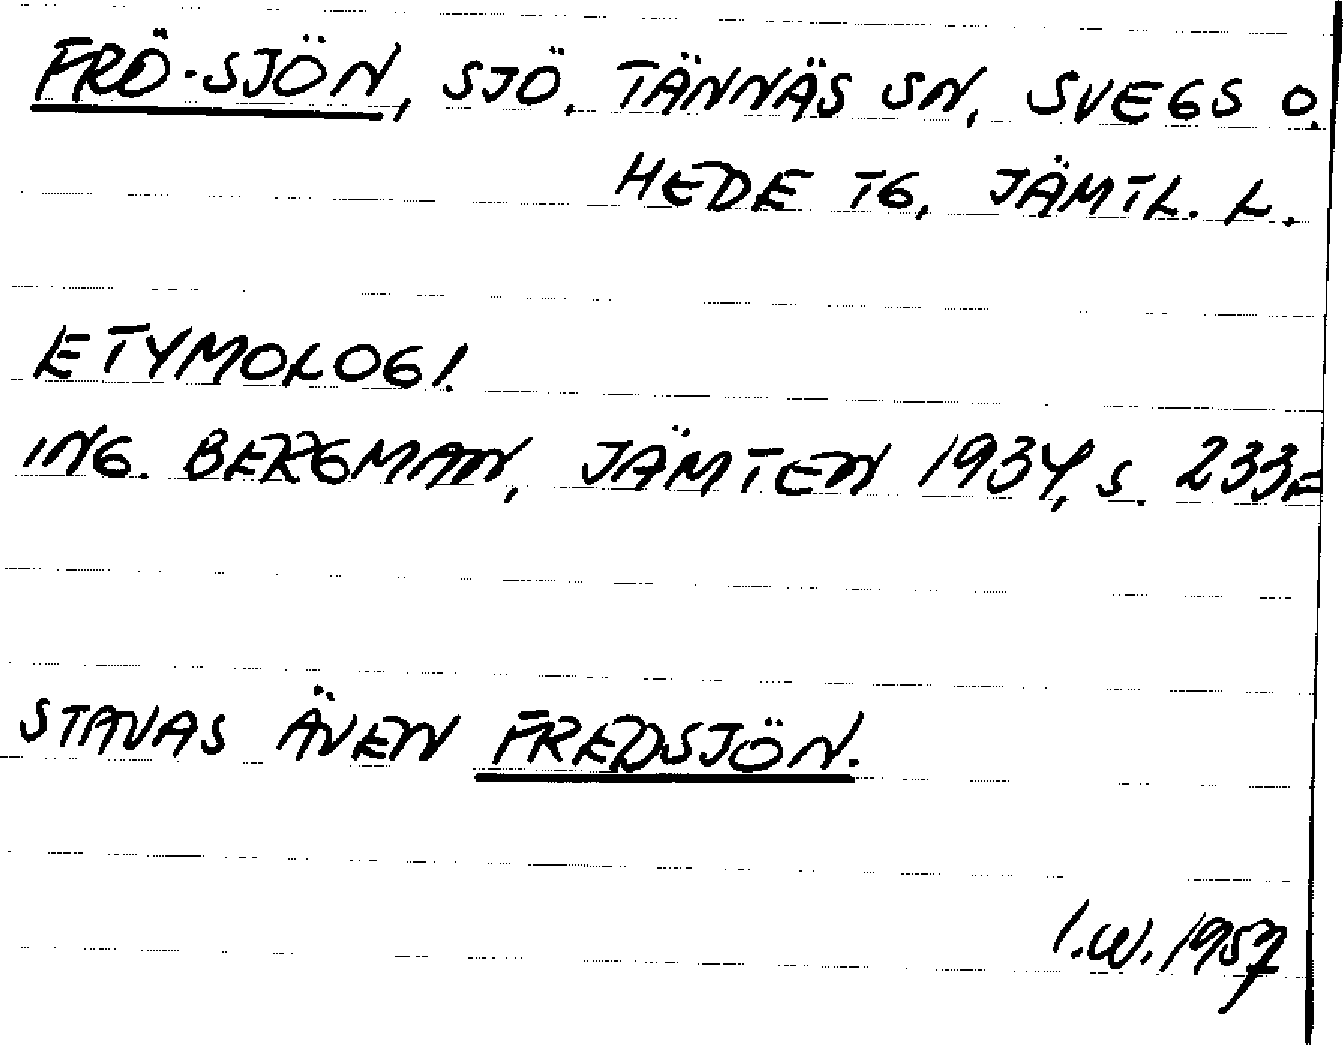 FRÖ-SJÖN, SJÖ, TÄNNÄS SN, SVEGS O.
HEDE TG, JÄMTL. L.
ETYMOLOGI.
ING. BERGMAN, JÄMTEN 1934, S. 233F
STAVAS ÄVEN FREDSJÖN.
I.W. 1957